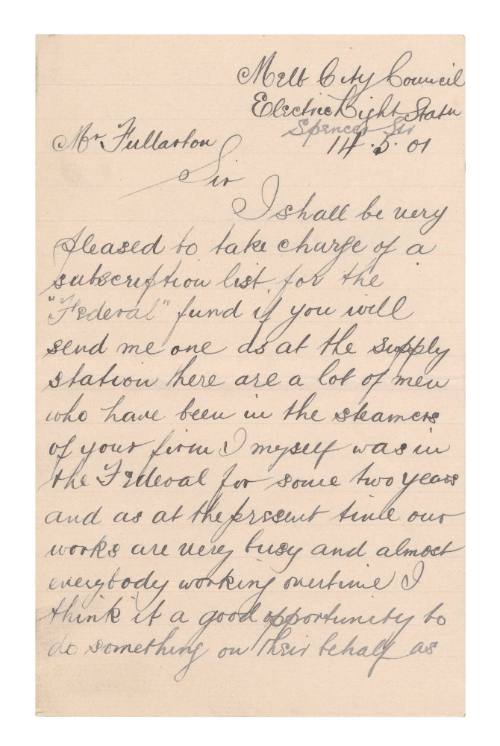 Melb City Council
Electric Light Statn
Spencer Str
14.5.01
Mr Fullarton
Sir
I shall be very
pleased to take charge of a
subscription list for the
"Federal" fund if you will
send me one as at the supply
station there are a lot of men
who have been in the steamers
of your firm I myself was in
the Federal for some two years
and as at the present time our
works are very busy and almost
everybody working overtime I
think it a good opportunity to
do something on their behalf as